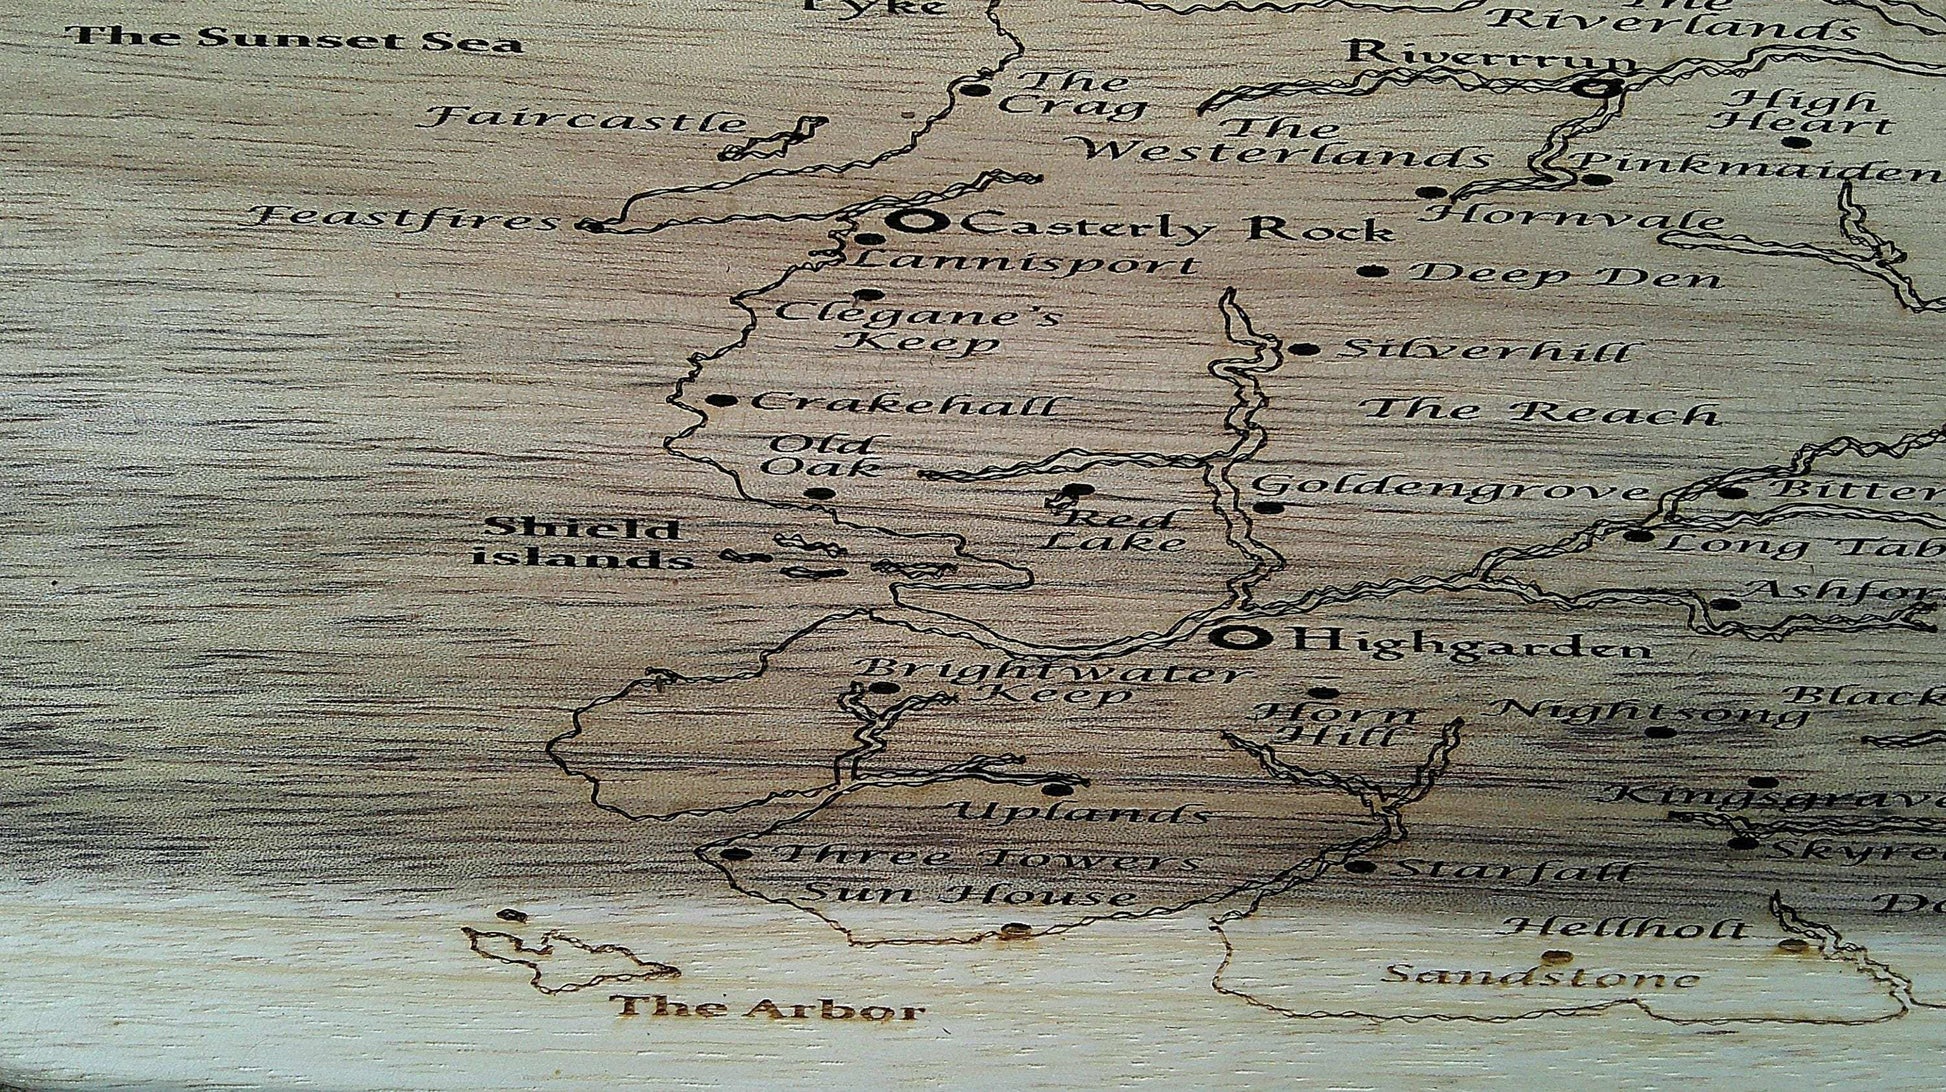 Pyke
The
Riverlands
The Sunset Sea
Riverrrun
The
Crag
Faircastle
High
Heart
The
Westerlands
Pinkmaiden
Feastfires
Casterly Rock
Hornvale
Lannisport
Deep Den
Clegane's
Keep
Silverhill
Crakehall
The Reach
Old
Oak
Goldengrove
Bitter
Shield
islands
Red
Lake
Long Tab
Ashfor
Highgarden
Brightwater
Keep
Horn
Hill
Nightsong
Black
Uplands
Kingsgrave
Three Towers
Skyre
Starfall
Sun House
Do
Hellholt
Sandstone
The Arbor